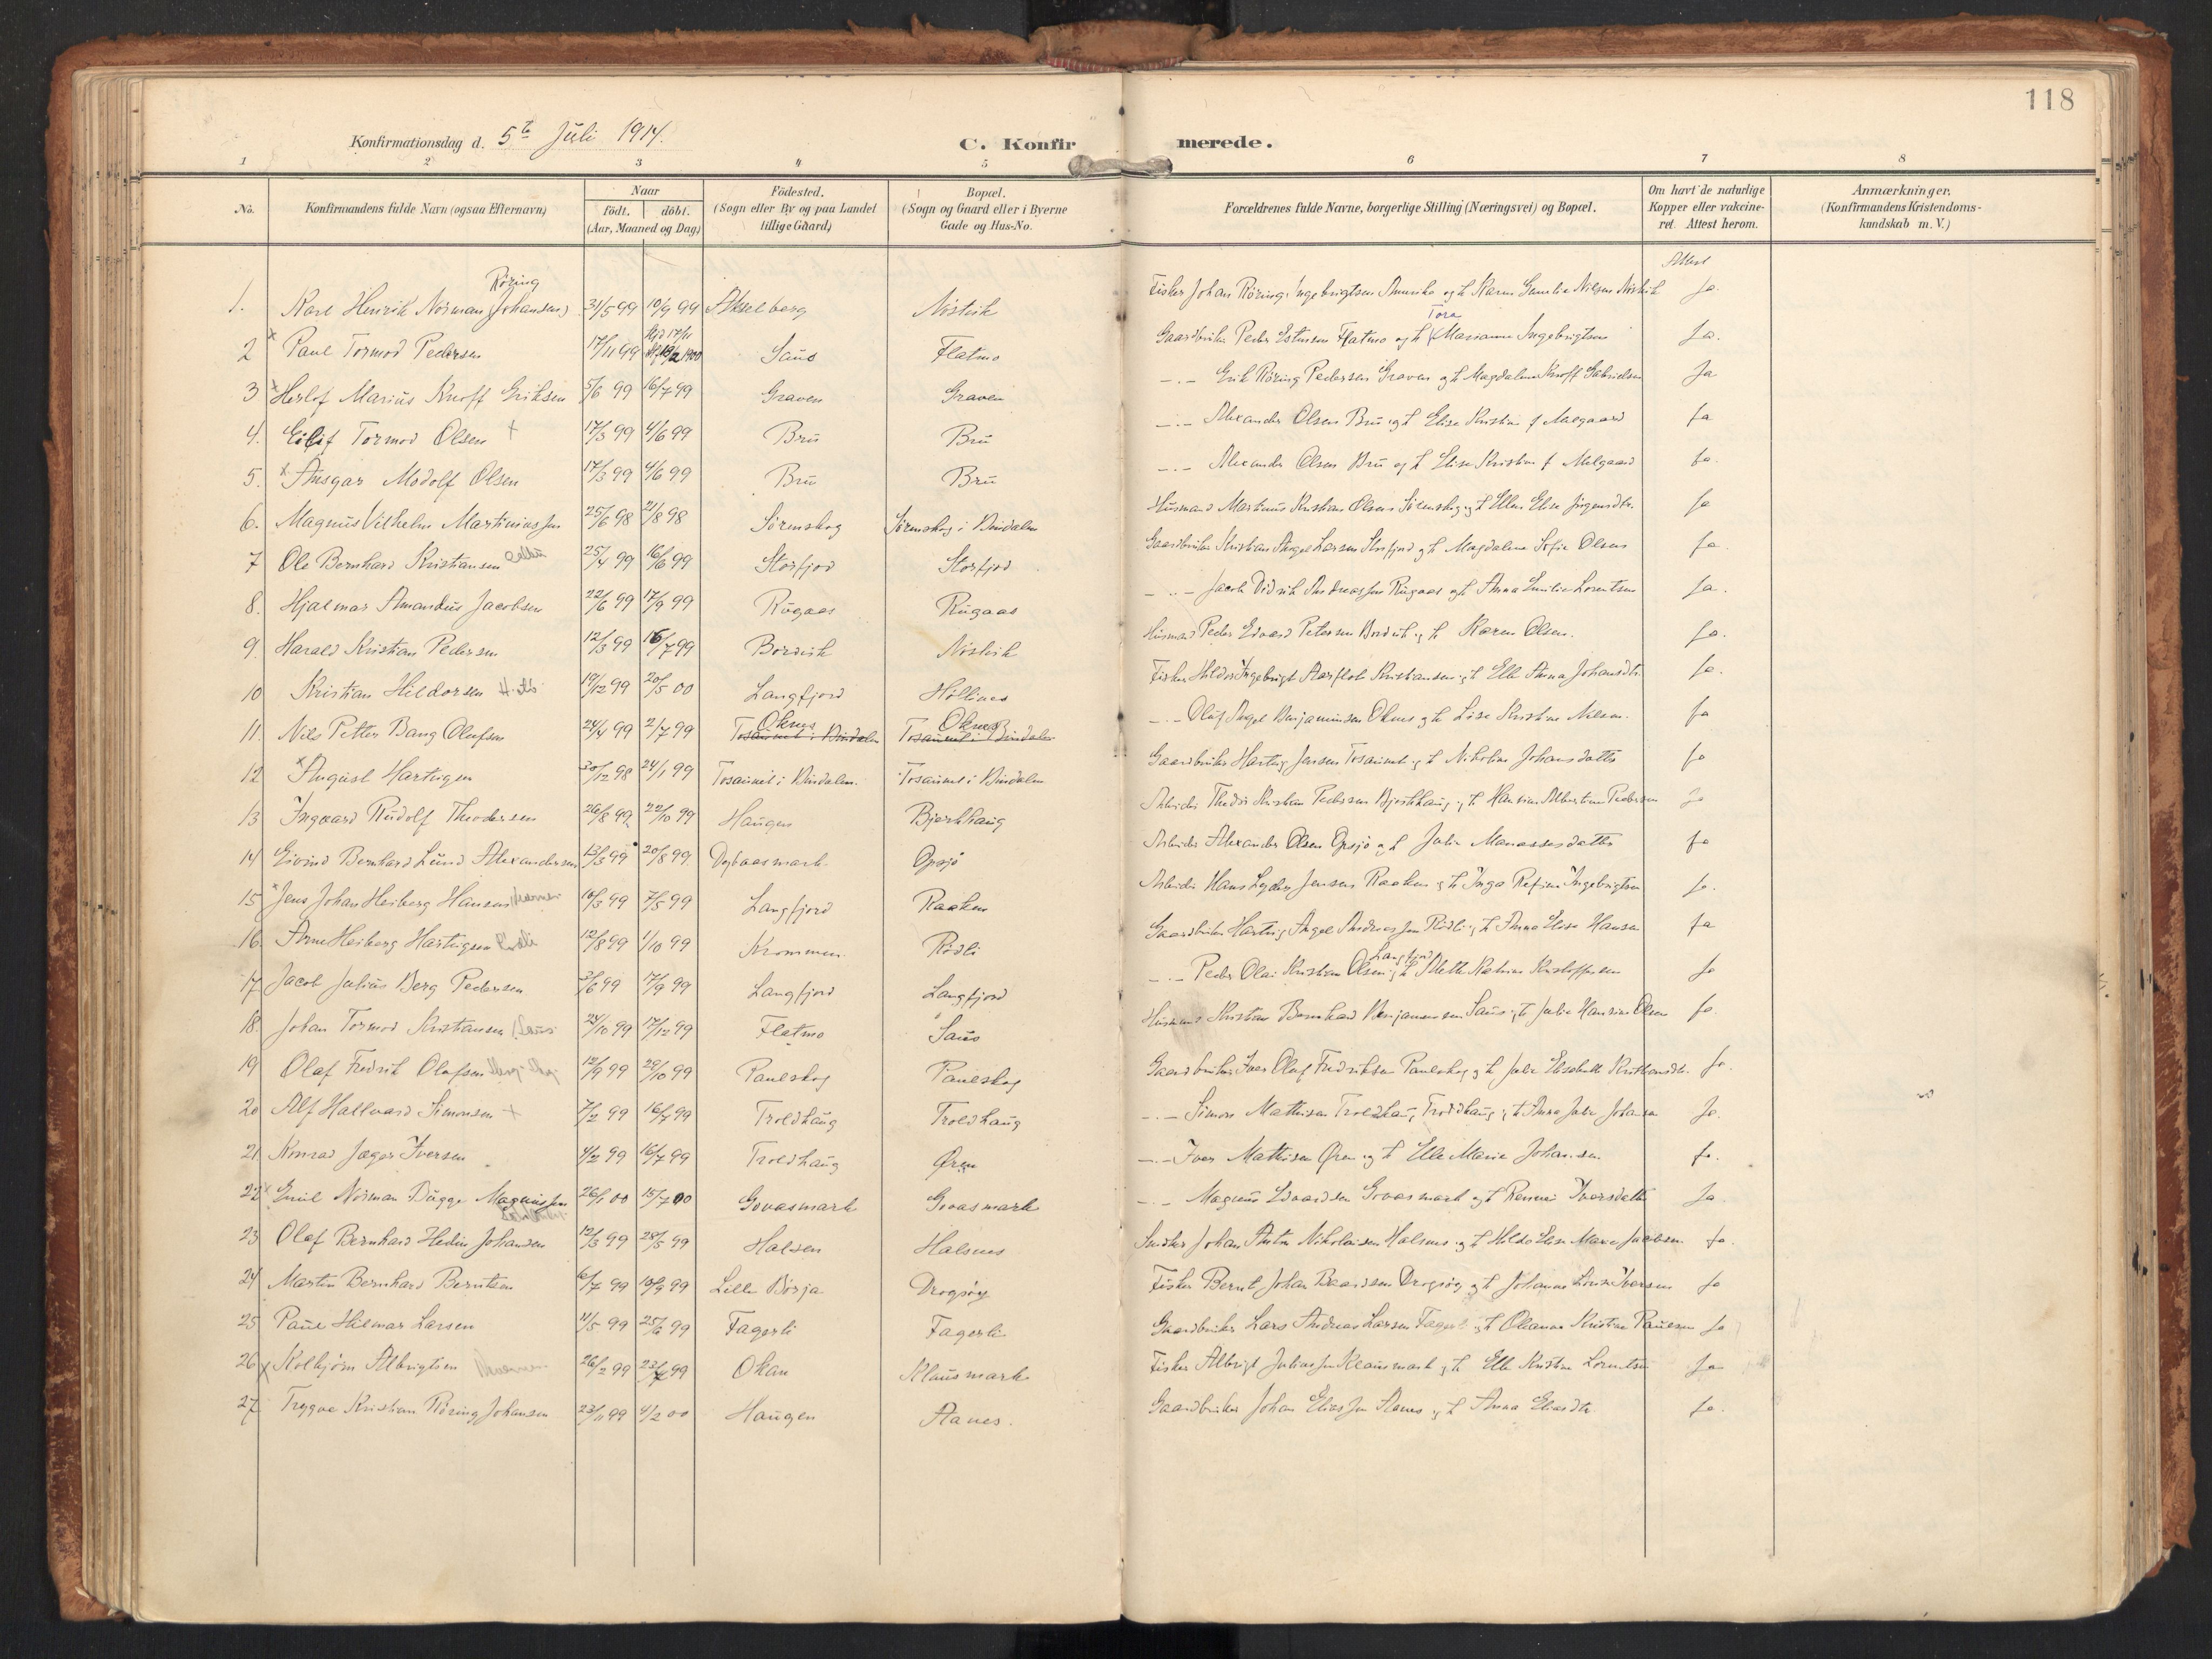 118
Konfirmationsdag d. 5te Juli 1914.
C. Konfirmerede.
1 2 3 4 5 6 7 8
No. Konfirmandens fulde Navn (ogsaa Efternavn) Naar födt. döbt. (Aar, Maaned og Dag) Födested. (Sogn eller By og paa Landet tillige Gaard) Bopæl. (Sogn og Gaard eller i Byerne Gade og Hus-No. Forældrenes fulde Navne, borgerlige Stilling (Næringsvei) og Bopæl. Om havt de naturlige Kopper eller vakcineret. Attest herom. Anmærkninger. (Konfirmandens Kristendomskundskab m. V.)
Attest
Röring
1. Karl Henrik Norman (Johansen) 31/5 99 10/9 99 Akselberg Nöstvik Fisker Johan Röring Ingebrigtsen Amerika og h Karen Nilsen Nöstvik Ja.
Tora
2 Paul Tormod Pedersen 17/11 99 Saus Flatmo Gaardbruker Peder Flatmo og h Marianne Ingebrigtsen Ja.
3 Herlof Marius Knoff Eriksen 5/6 99 16/7 99 Graven Graven - . - Erik Röring Pedersen Graven og h Magdalena Knoff Gabrielsen Ja
4. Eilif Tormod Olsen + 17/3 99 4/6 99 Bru Bru - . - Alexander Olsen Bru og h Elise Kristine f Melgaard Ja
5. Ansgar Modolf Olsen 17/3 99 4/6 99 Bru Bru - . - Alexander Olsen Bru og h Elise Kristine f Melgaard Ja.
6. Magnus Vilhelm Martinussen 25/6 98 21/8 98 Sörenskog Sörenskog i Bindalen Husmand Martinus Kristian Olsen Sörenskog og h Ellen Elise Jörgensdtr. Ja
7 Ole Bernhard Kristiansen 25/4 99 16/6 99 Storfjord Storfjord Gaardbruker Kristian Angel Larsen Storfjord og h Magdalena Sofie Olsen Ja.
8. Hjalmar Amandus Jacobsen 22/6 99 17/9 99 Rugaas Rugaas - .. - Jacob Didrik Andreassen Rugaas og h Anna Emilie Lorentsen Ja.
9. Harald Kristian Pedersen 12/3 99 16/7 99 Bordvik Nöstvik Husmand Peder Edvard Petersen Bordvik og h Karen Olsen. Ja.
10 Kristian Hildorsen 19/12 99 20/5 00 Langfjord Hollines Fisker Hildor Ingebrigt Aarflot Kristiansen og h Elle Anna Johansdtr. Ja.
Oknes Oknes
11. Nils Petter Bang Olufsen 24/4 99 2/7 99 Tosaunet i Bindalen Tosaunet i Bindalen - . - Oluf Angel Benjaminsen Oknes og h Lise Kristine Nilsen. Ja
12 August Hartvigen 30/12 98 24/1 99 Tosaunet i Bindalen. Tosaunet i Bindalen Gaardbruker Hartvig Jensen Tosaunet og h Nikoline Johansdatter Ja
13 Ingvard Rudolf Theodorsen 26/8 99 22/10 99 Haugen Bjerkhaug Arbeider Theodor Kristian Pedersen Bjerkhaug og h Hansine Albertine Pedersen Ja
14 Eivind Bernhard Lund Alexandersen 13/5 99 20/8 99 Dybaasmark. Opsjö Arbeider Alexander Olsen Opsjö og h Julie Manassesdatter Ja
15 Jens Johan Heiberg Hansen 10/3 99 7/5 99 Langfjord Raaken Arbeider Hans Lyder Jensen Raaken og h Inga Refine Ingebrigtsen Ja.
16. Arne Heiberg Hartvigsen Rodli 12/8 99 1/10 99 Krommen Rödli Gaardbruker Hartvig Angel Andreassen Rödli og h Anna Elise Hansen Ja
Langfjord
17 Jacob Julius Berg Pedersen 3/6 99 17/9 99 Langfjord Langfjord - . - Peder Olai Kristian Olsen og h Mette Katrine Kristoffersen Ja
18. Johan Tormod Kristiansen Saus 24/10 99 17/12 99 Flatmo Saus Husmand Kristian Bernhard Benjaminsen Saus og h Julie Hansine Olsen Ja.
19 Olaf Fredrik Olafsen 12/9 99 22/10 99 Paulskog Paulskog Gaardbruker Iver Oluf Fredriksen Paulskog og h Julie Elisabeth Kristiansdtr. Ja.
20 Alf Hallvard Simonsen + 7/2 99 16/7 99 Troldhaug Troldhaug - . - Simon Mathisen Troldhaug og h Anna Julie Johansen Ja.
21 Konrad Jæger Iversen 4/2 99 16/7 99 Troldhaug Øren - . - Iver Mathisen Øren og h Elle Marie Johansen Ja.
22 Emil Norman Dugge Magnussen 26/1 00 15/7 00 Govasmark Govasmark - . - Magnus Edvardsen Govasmark og h Iversdatter Ja
23 Olaf Bernhard Hedin Johansen 12/3 99 28/5 99 Halsen Halsnes Snedker Johan Anton Nikolaisen Halsnes og h Hilda Elise Marie Jacobsen Ja.
24 Martin Bernhard Berntsen 6/7 99 10/9 99 Lille Börja Drogsöy Fisker Bernt Johan Baardsen Drogsöy og h Johanne Lovise Iversen Ja
25 Paul Hilmar Larsen 11/5 99 25/6 99 Fagerli Fagerli Gaardbruker Lars Andreas Larsen Fagerli og h Oleanna Kristine Paulsen Ja
26 x Kolbjörn Albrigtsen 26/2 99 23/7 99 Okan Klausmark Fisker Albrigt Juliussen Klausmark og h Elle Kristine Lorentsen Ja
27 Trygve Kristian Röring Johansen 23/11 99 4/2 00 Haugen Aanes. Gaardbruker Johan Eliassen Aanes og h Anna Eliasdtr. Ja.